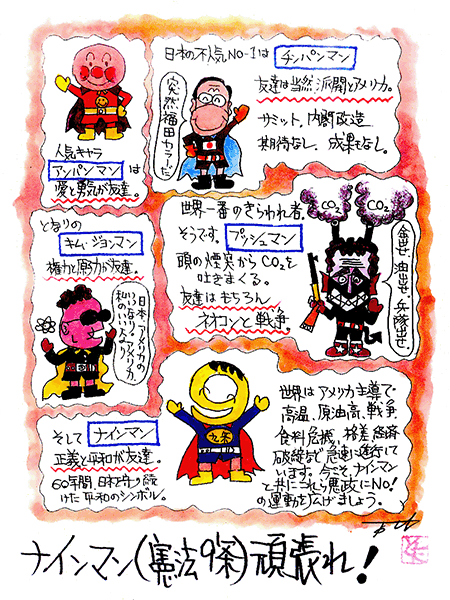 人気キャラ
アンパンマンは
愛と勇気が友達。
日本の不人気NO-1は チンパンマン
友達は当然派閥とアメリカ。
サミット、内閣改造
期待なし、成果もなし。
突然福田カァーだ
となりの
キム・ジョンマン
権力と原子力が友達。
日本、アメリカの
いいなり、アメリカ、
私のいいなり
世界一番のきらわれ者。
そうです。ブッシュマン
頭の煙突からCO₂を
吐きまくる。
友達はもちろん
ネオコンと戦争。
CO₂ CO₂
金出せ、油出せ、兵隊出せ、
そして ナインマン
正義と平和が友達。
60年間、日本を守り続
けた平和のシンボル。
九条
世界はアメリカ主導で
高温、原油高、戦争
食料危機、格差、経済
破綻など急速に進行して
います。今こそ、ナインマン
と共にこれら悪政にNO!
の運動を広げましょう。
ナインマン(憲法9条)頑張れ!